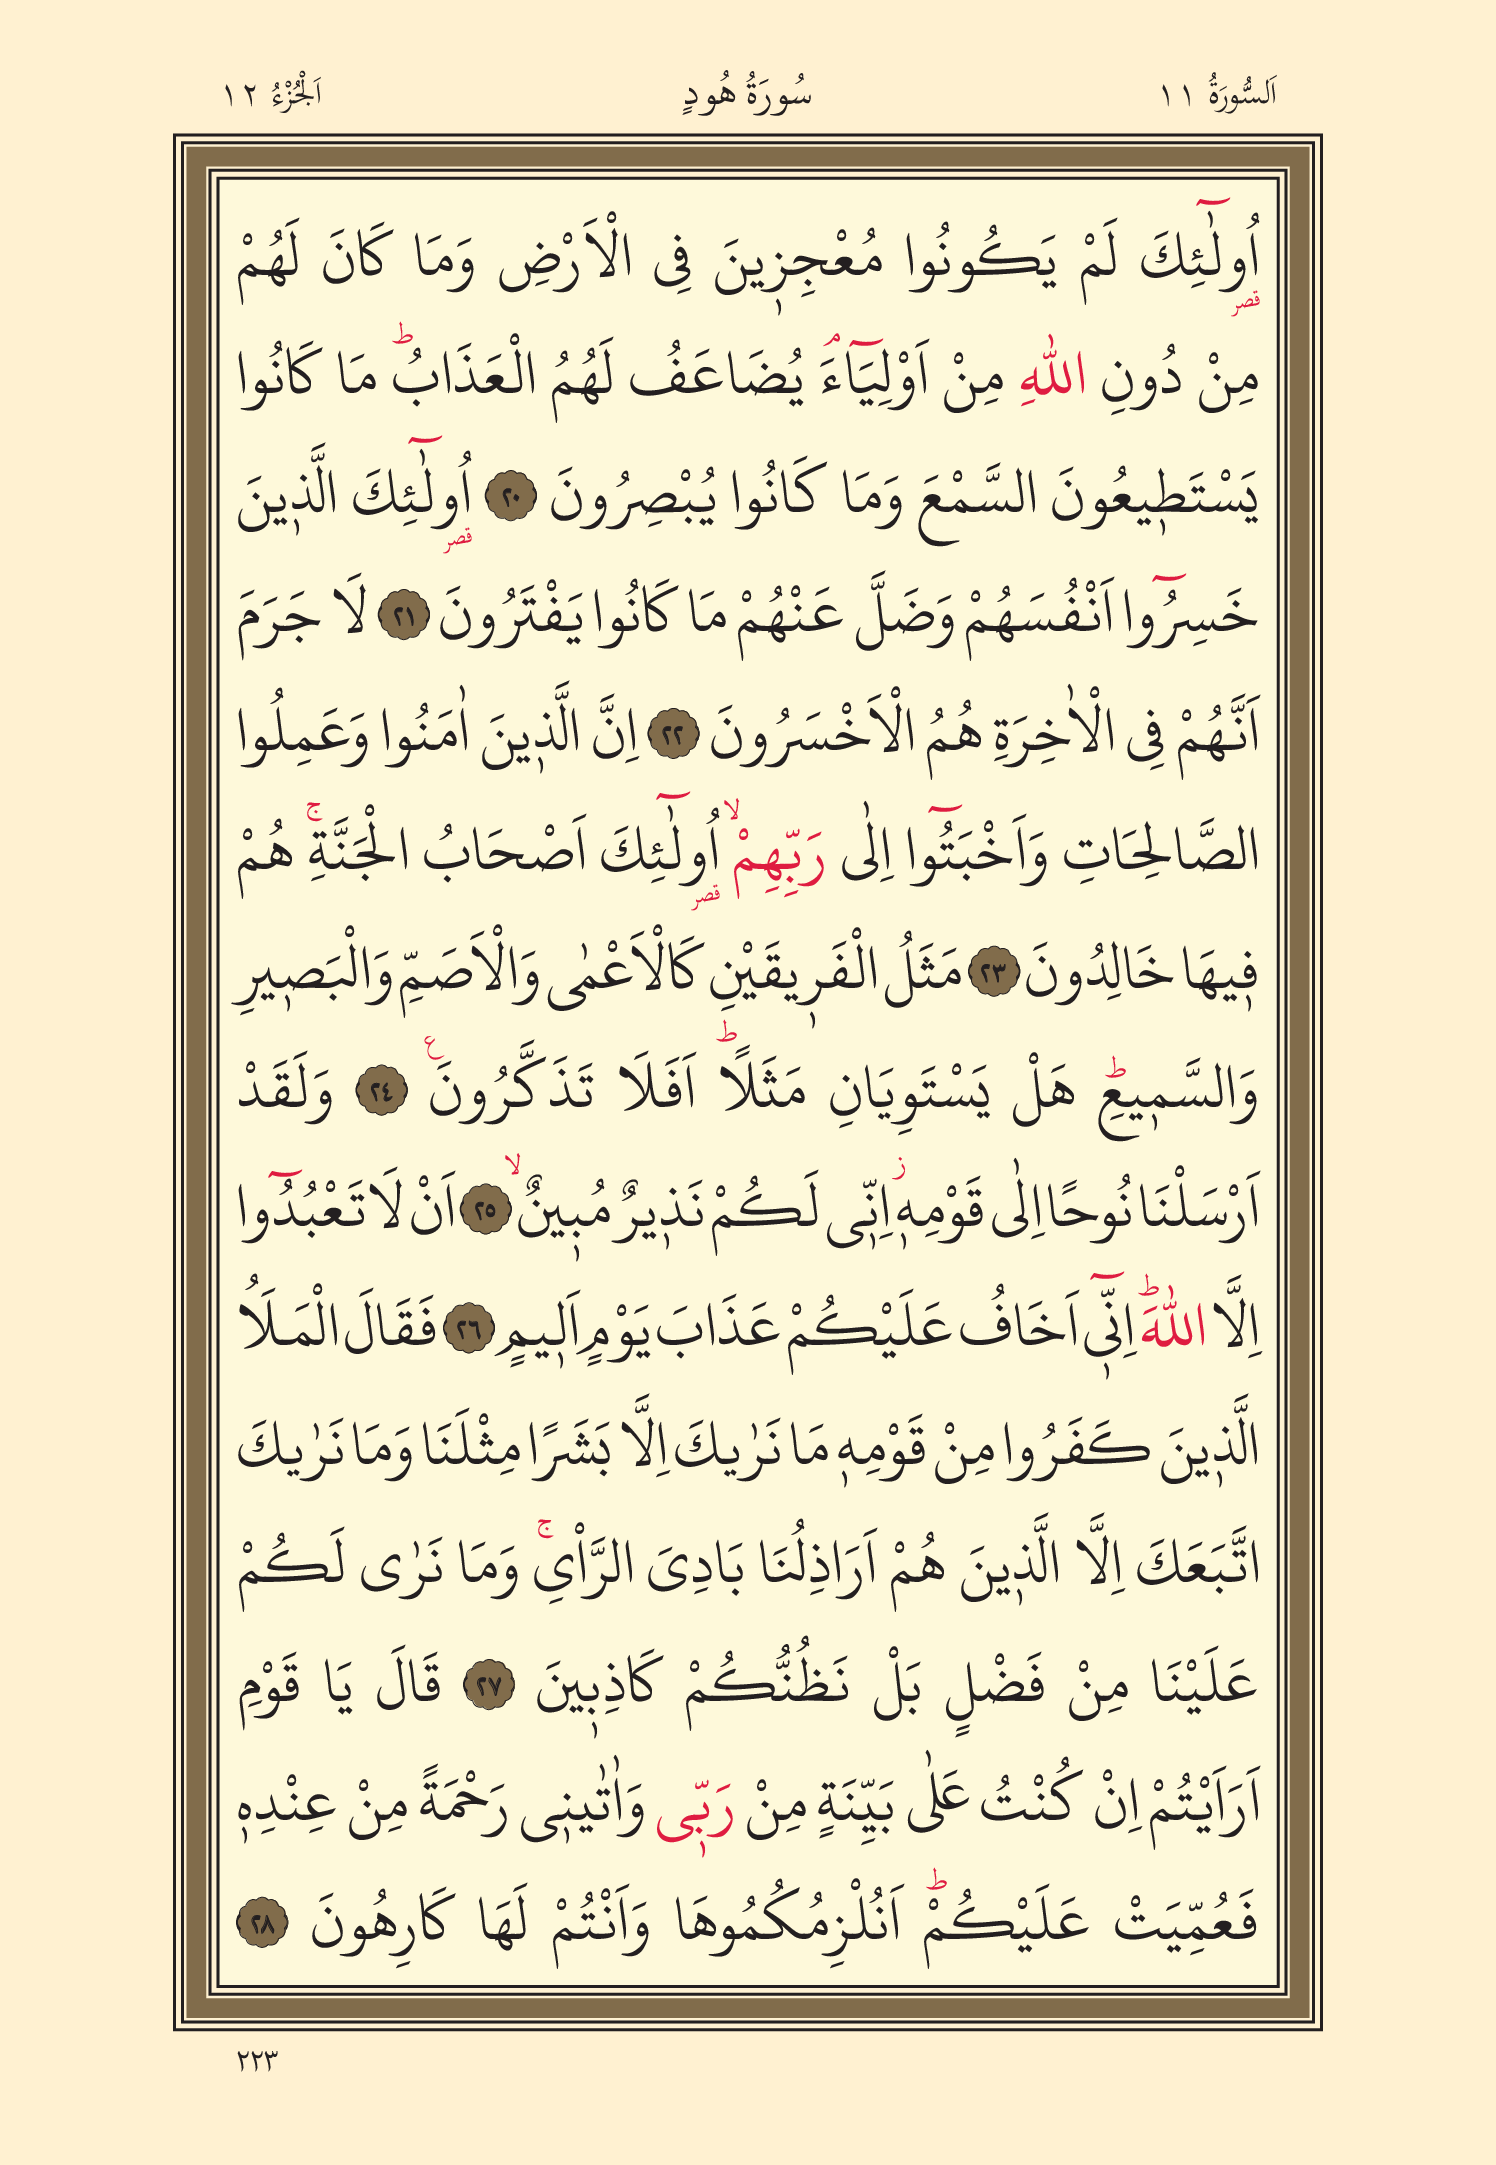 اَلسُّورَةُ ١١ سُورَةُ هُودٍ اَلْجُزْءُ ١٢
اُو۬لٰٓئِكَ لَمْ يَكُونُوا مُعْجِز۪ينَ فِى الْاَرْضِ وَمَا كَانَ لَهُمْ
قصر
مِنْ دُونِ اللّٰهِ مِنْ اَوْلِيَٓاءَۢ يُضَاعَفُ لَهُمُ الْعَذَابُۜ مَا كَانُوا
يَسْتَط۪يعُونَ السَّمْعَ وَمَا كَانُوا يُبْصِرُونَ ٢٠ اُو۬لٰٓئِكَ الَّذ۪ينَ
قصر
خَسِرُٓوا اَنْفُسَهُمْ وَضَلَّ عَنْهُمْ مَا كَانُوا يَفْتَرُونَ ٢١ لَا جَرَمَ
اَنَّهُمْ فِى الْاٰخِرَةِ هُمُ الْاَخْسَرُونَ ٢٢ اِنَّ الَّذ۪ينَ اٰمَنُوا وَعَمِلُوا
الصَّالِحَاتِ وَاَخْبَتُٓوا اِلٰى رَبِّهِمْۙ اُو۬لٰٓئِكَ اَصْحَابُ الْجَنَّةِۚ هُمْ
قصر
ف۪يهَا خَالِدُونَ ٢٣ مَثَلُ الْفَر۪يقَيْنِ كَالْاَعْمٰى وَالْاَصَمِّ وَالْبَص۪يرِ
وَالسَّم۪يعِۜ هَلْ يَسْتَوِيَانِ مَثَلًاۜ اَفَلَا تَذَكَّرُونَ ع ٢٤ وَلَقَدْ
اَرْسَلْنَا نُوحًا اِلٰى قَوْمِه۪ۘ اِنّ۪ى لَكُمْ نَذ۪يرٌ مُب۪ينٌۙ ٢٥ اَنْ لَا تَعْبُدُٓوا
اِلَّا اللّٰهَۜ اِنّ۪ٓى اَخَافُ عَلَيْكُمْ عَذَابَ يَوْمٍ اَل۪يمٍ ٢٦ فَقَالَ الْمَلَاُ
الَّذ۪ينَ كَفَرُوا مِنْ قَوْمِه۪ مَا نَرٰيكَ اِلَّا بَشَرًا مِثْلَنَا وَمَا نَرٰيكَ
اتَّبَعَكَ اِلَّا الَّذ۪ينَ هُمْ اَرَاذِلُنَا بَادِىَ الرَّاْىِۚ وَمَا نَرٰى لَكُمْ
عَلَيْنَا مِنْ فَضْلٍ بَلْ نَظُنُّكُمْ كَاذِب۪ينَ ٢٧ قَالَ يَا قَوْمِ
اَرَاَيْتُمْ اِنْ كُنْتُ عَلٰى بَيِّنَةٍ مِنْ رَبّ۪ى وَاٰتٰين۪ى رَحْمَةً مِنْ عِنْدِه۪
فَعُمِّيَتْ عَلَيْكُمْۜ اَنُلْزِمُكُمُوهَا وَاَنْتُمْ لَهَا كَارِهُونَ ٢٨
٢٢٣